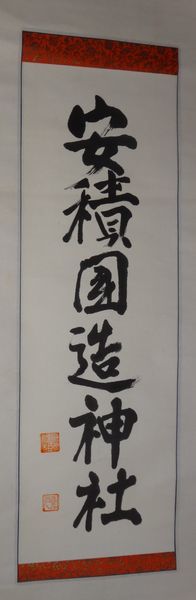 安積国造神社